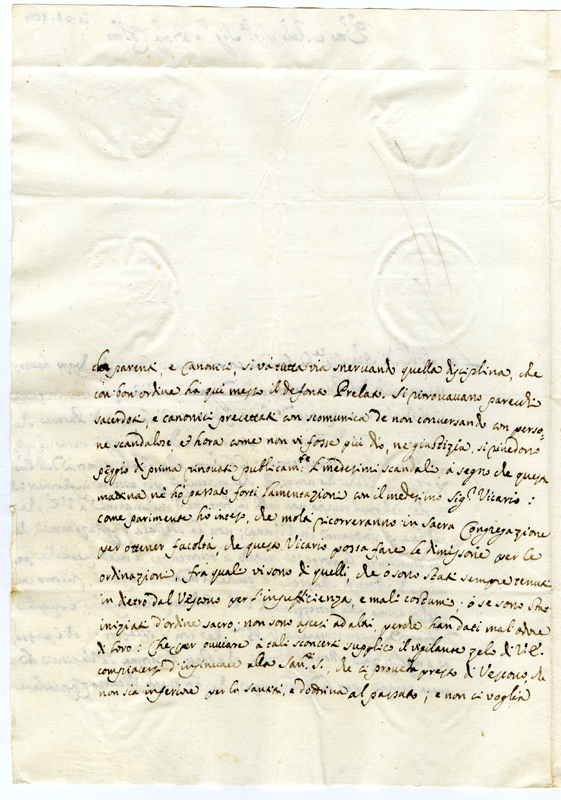 che parenti, e Canonici, si và tutta via snervando quella disciplina, che
con bon'ordine hà qui messo il defonto Prelato. Si ritrovavano parecchi
sacerdoti, e canonici precettati con scomunica de non conversando con perso,,
ne scandalose et hora come non vi fosse più dio, ne giustizia, si vedono
peggio di prima rinovati publicam.te li medesimi scandali à segno che questa
matina ne hò passato forti lamentazioni con il medesimo Sig.r Vicario:
come parimente hò inteso, che molti ricorreranno in Sacra Congregazione
per ottener facoltà, che questo Vicario possa fare le dimissorie per le
ordinazioni, frà quali vi sono di quelli, che ò sono stati sempre tenuti
in dietro dal Vescovo per l'insufficienza, e mali costumi; ò se sono stati
iniziati d'ordine sacro, non sono ascesi ad altri, perche han dati mal odore
di loro: Che per ovviare à tali sconcerti supplico il vigilante zelo di V.E.
compiacersi d'insinuare alla San.tà S., che ci proveda presto di Vescovo, che
non sia inferiore per la santità, e dottrina al passato; e non ci voglia